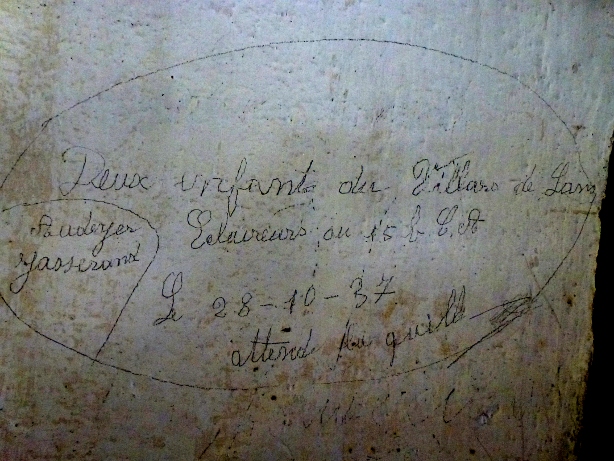 Deux enfants du Villars de Lans
Eclaireurs au 15 b C.A
Le 28-10-37
attend la quille
Audeyer
Jasserand